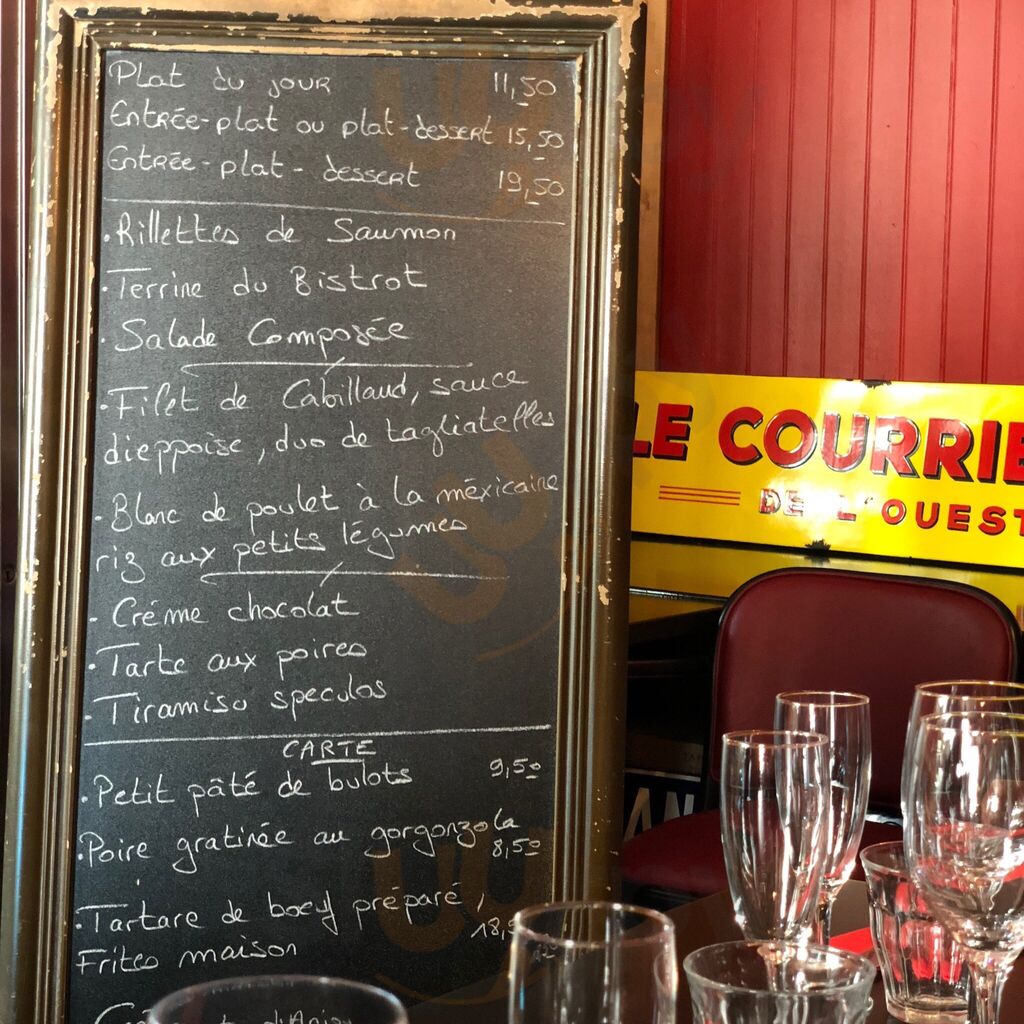 Plat du jour 11,50
Entrée-plat ou plat-dessert 15,50
Entrée-plat-dessert 19,50
·Rillettes de Saumon
·Terrine du Bistrot
·Salade Composée
·Filet de Cabillaud, sauce
dieppoise, duo de tagliatelles
·Blanc de poulet à la méxicaine
riz aux petits légumes
-Créme chocolat
·Tarte aux poires
·Tiramisu speculos
CARTE
·Petit pâté de bulots 9,50
·Poire gratinée au gorgonzola
8,50
·Tartare de boeuf préparé,
Frites maison 18,5
d'Anjou
LE COURRIE
DE L'OUEST
AN